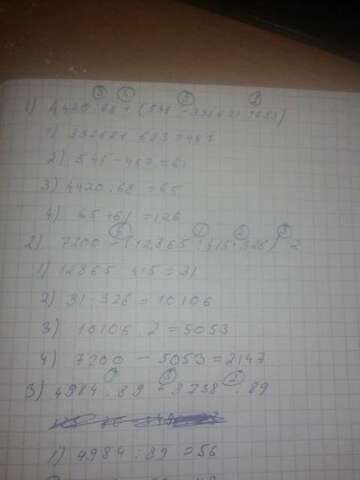 1) 4420 : 68 + (548 - 332621 : 683)
1) 332621 : 683 = 487
2) 548 - 487 = 61
3) 4420 : 68 = 65
4) 65 + 61 = 126
2) 7200 - (12865 : 415 · 326) : 2
1) 12865 : 415 = 31
2) 31 · 326 = 10106
3) 10106 : 2 = 5053
4) 7200 - 5053 = 2147
3) 4984 : 89 - 3738 : 89
1) 4984 : 89 = 56